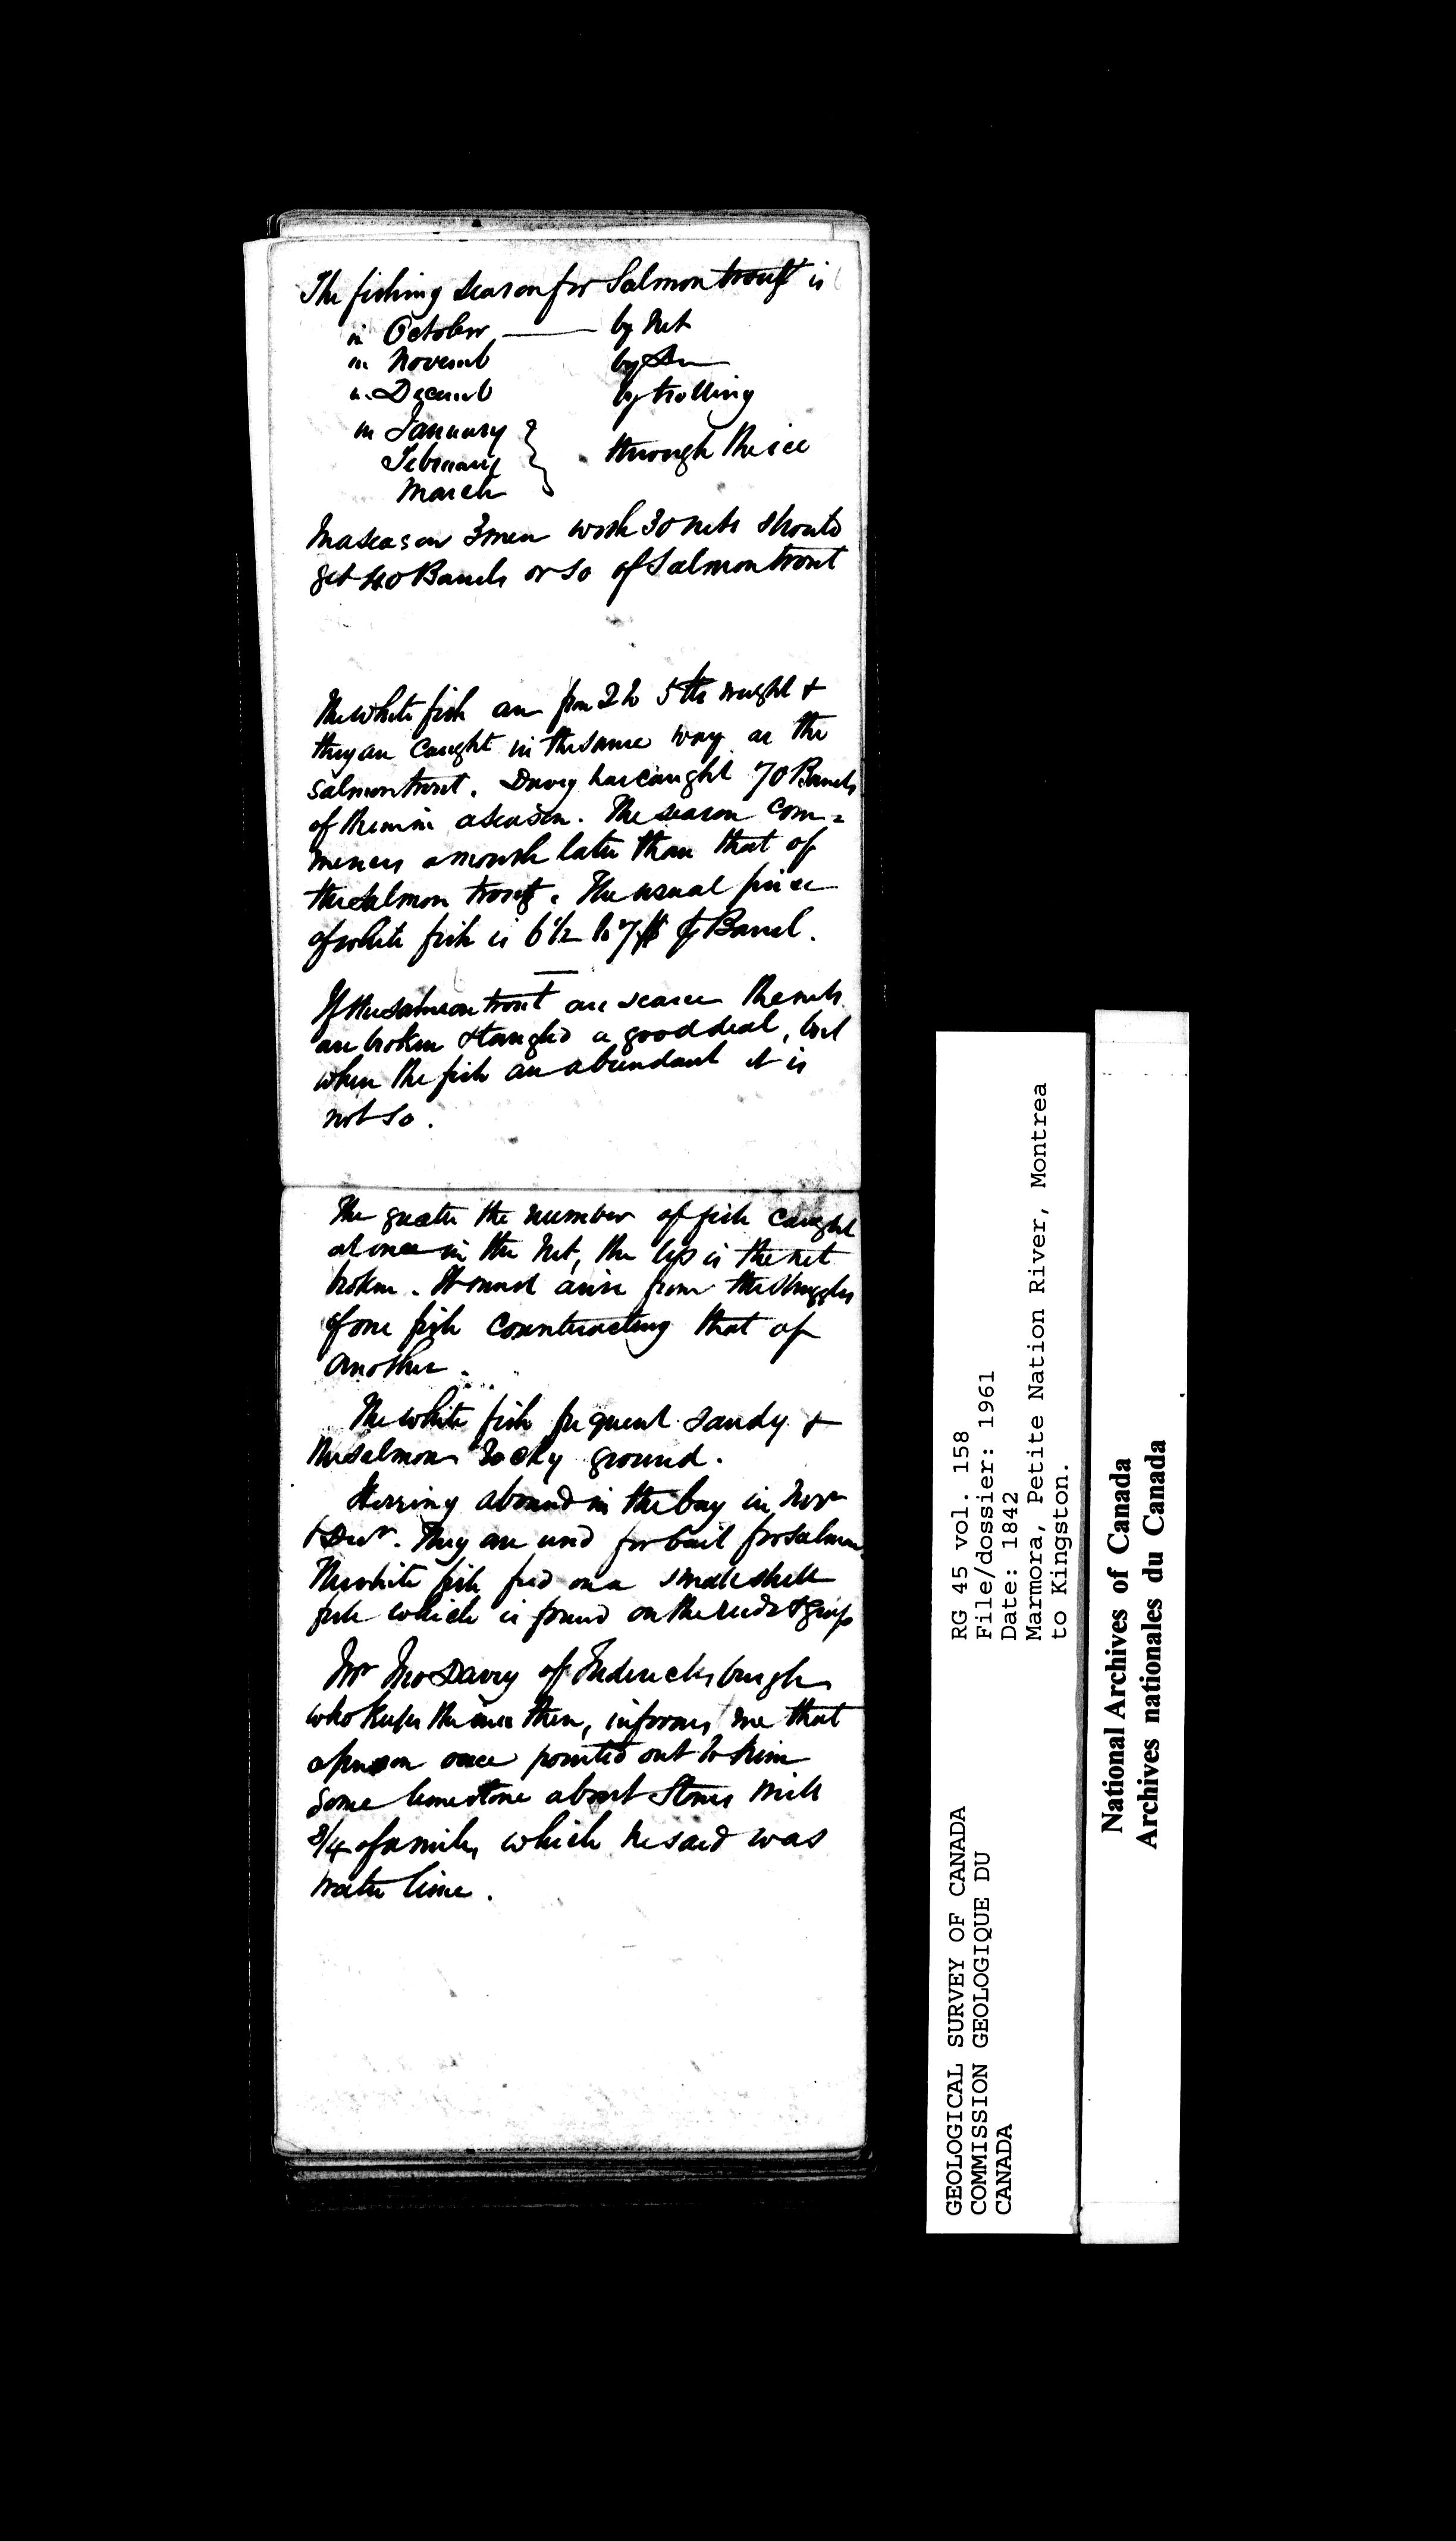 The fishing season for Salmon trout is
in October —— by Net
in Novemb by Do
in Decemb by trolling
in January
February } through the ice
March
In a season 3 men with 30 nets should
get 40 Barrels or so of Salmon trout
The white fish are from 2 to 5 lbs weight &
they are caught in the same way as the
salmon trout. Davy has caught 70 Barrels
of them in a season. The season com=
mences a month later than that of
the salmon trout. The usual price
of white fish is 6 1/2 to 7 $ ⅌ Barrel.
If the salmon trout are scarce the nets
are broken & tangled a good deal, but
when the fish are abundant it is
not so.
The greater the number of fish caught
at once in the net, the less is the net
broken. It must arise from the struggles
of one fish counteracting that of
another.
The white fish frequent sandy &
the salmon rocky ground.
Herring abound in the bay in Novr
& Decr. They are used for bait for salmon
The white fish feed on a small shell
fish which is found on the reeds & grass
Mr Jno Davy of Fredericksburgh
who keeps the inn there, informs me that
a person once pointed out to him
some limestone about Stones Mill
3/4 of a mile, which he said was
water lime.
GEOLOGICAL SURVEY OF CANADA
COMMISSION GEOLOGIQUE DU
CANADA
RG 45 vol. 158
File/dossier: 1961
Date: 1842
Marmora, Petite Nation River, Montrea
to Kingston.
National Archives of Canada
Archives nationales du Canada